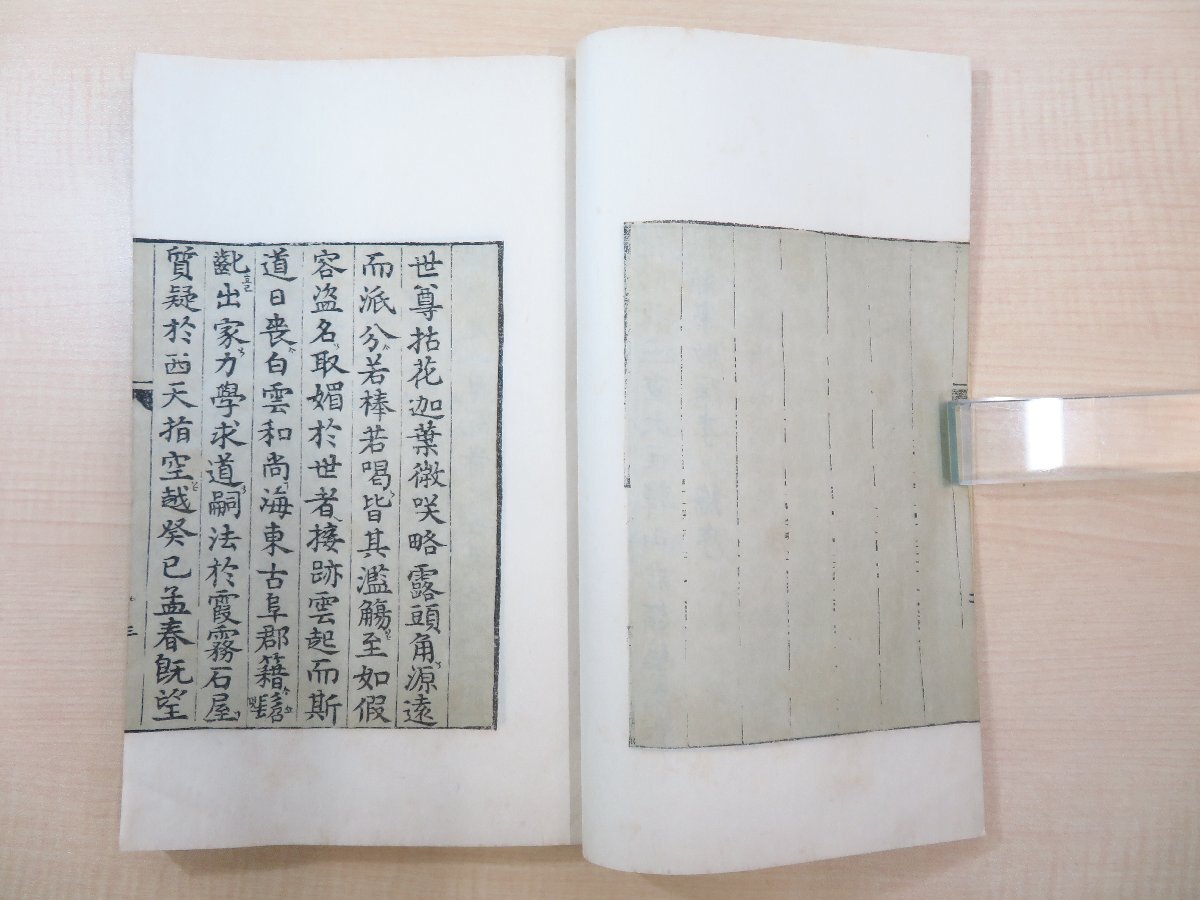 世尊拈花迦葉微咲略露頭角源遠
而派分若棒若喝皆其濫觴至如假
容盜名取媚於世者接跡雲起而斯
道日喪白雲和尚海東古阜郡籍髫
齔出家力學求道嗣法於霞霧石屋
質疑於西天指空越癸巳孟春旣望
三